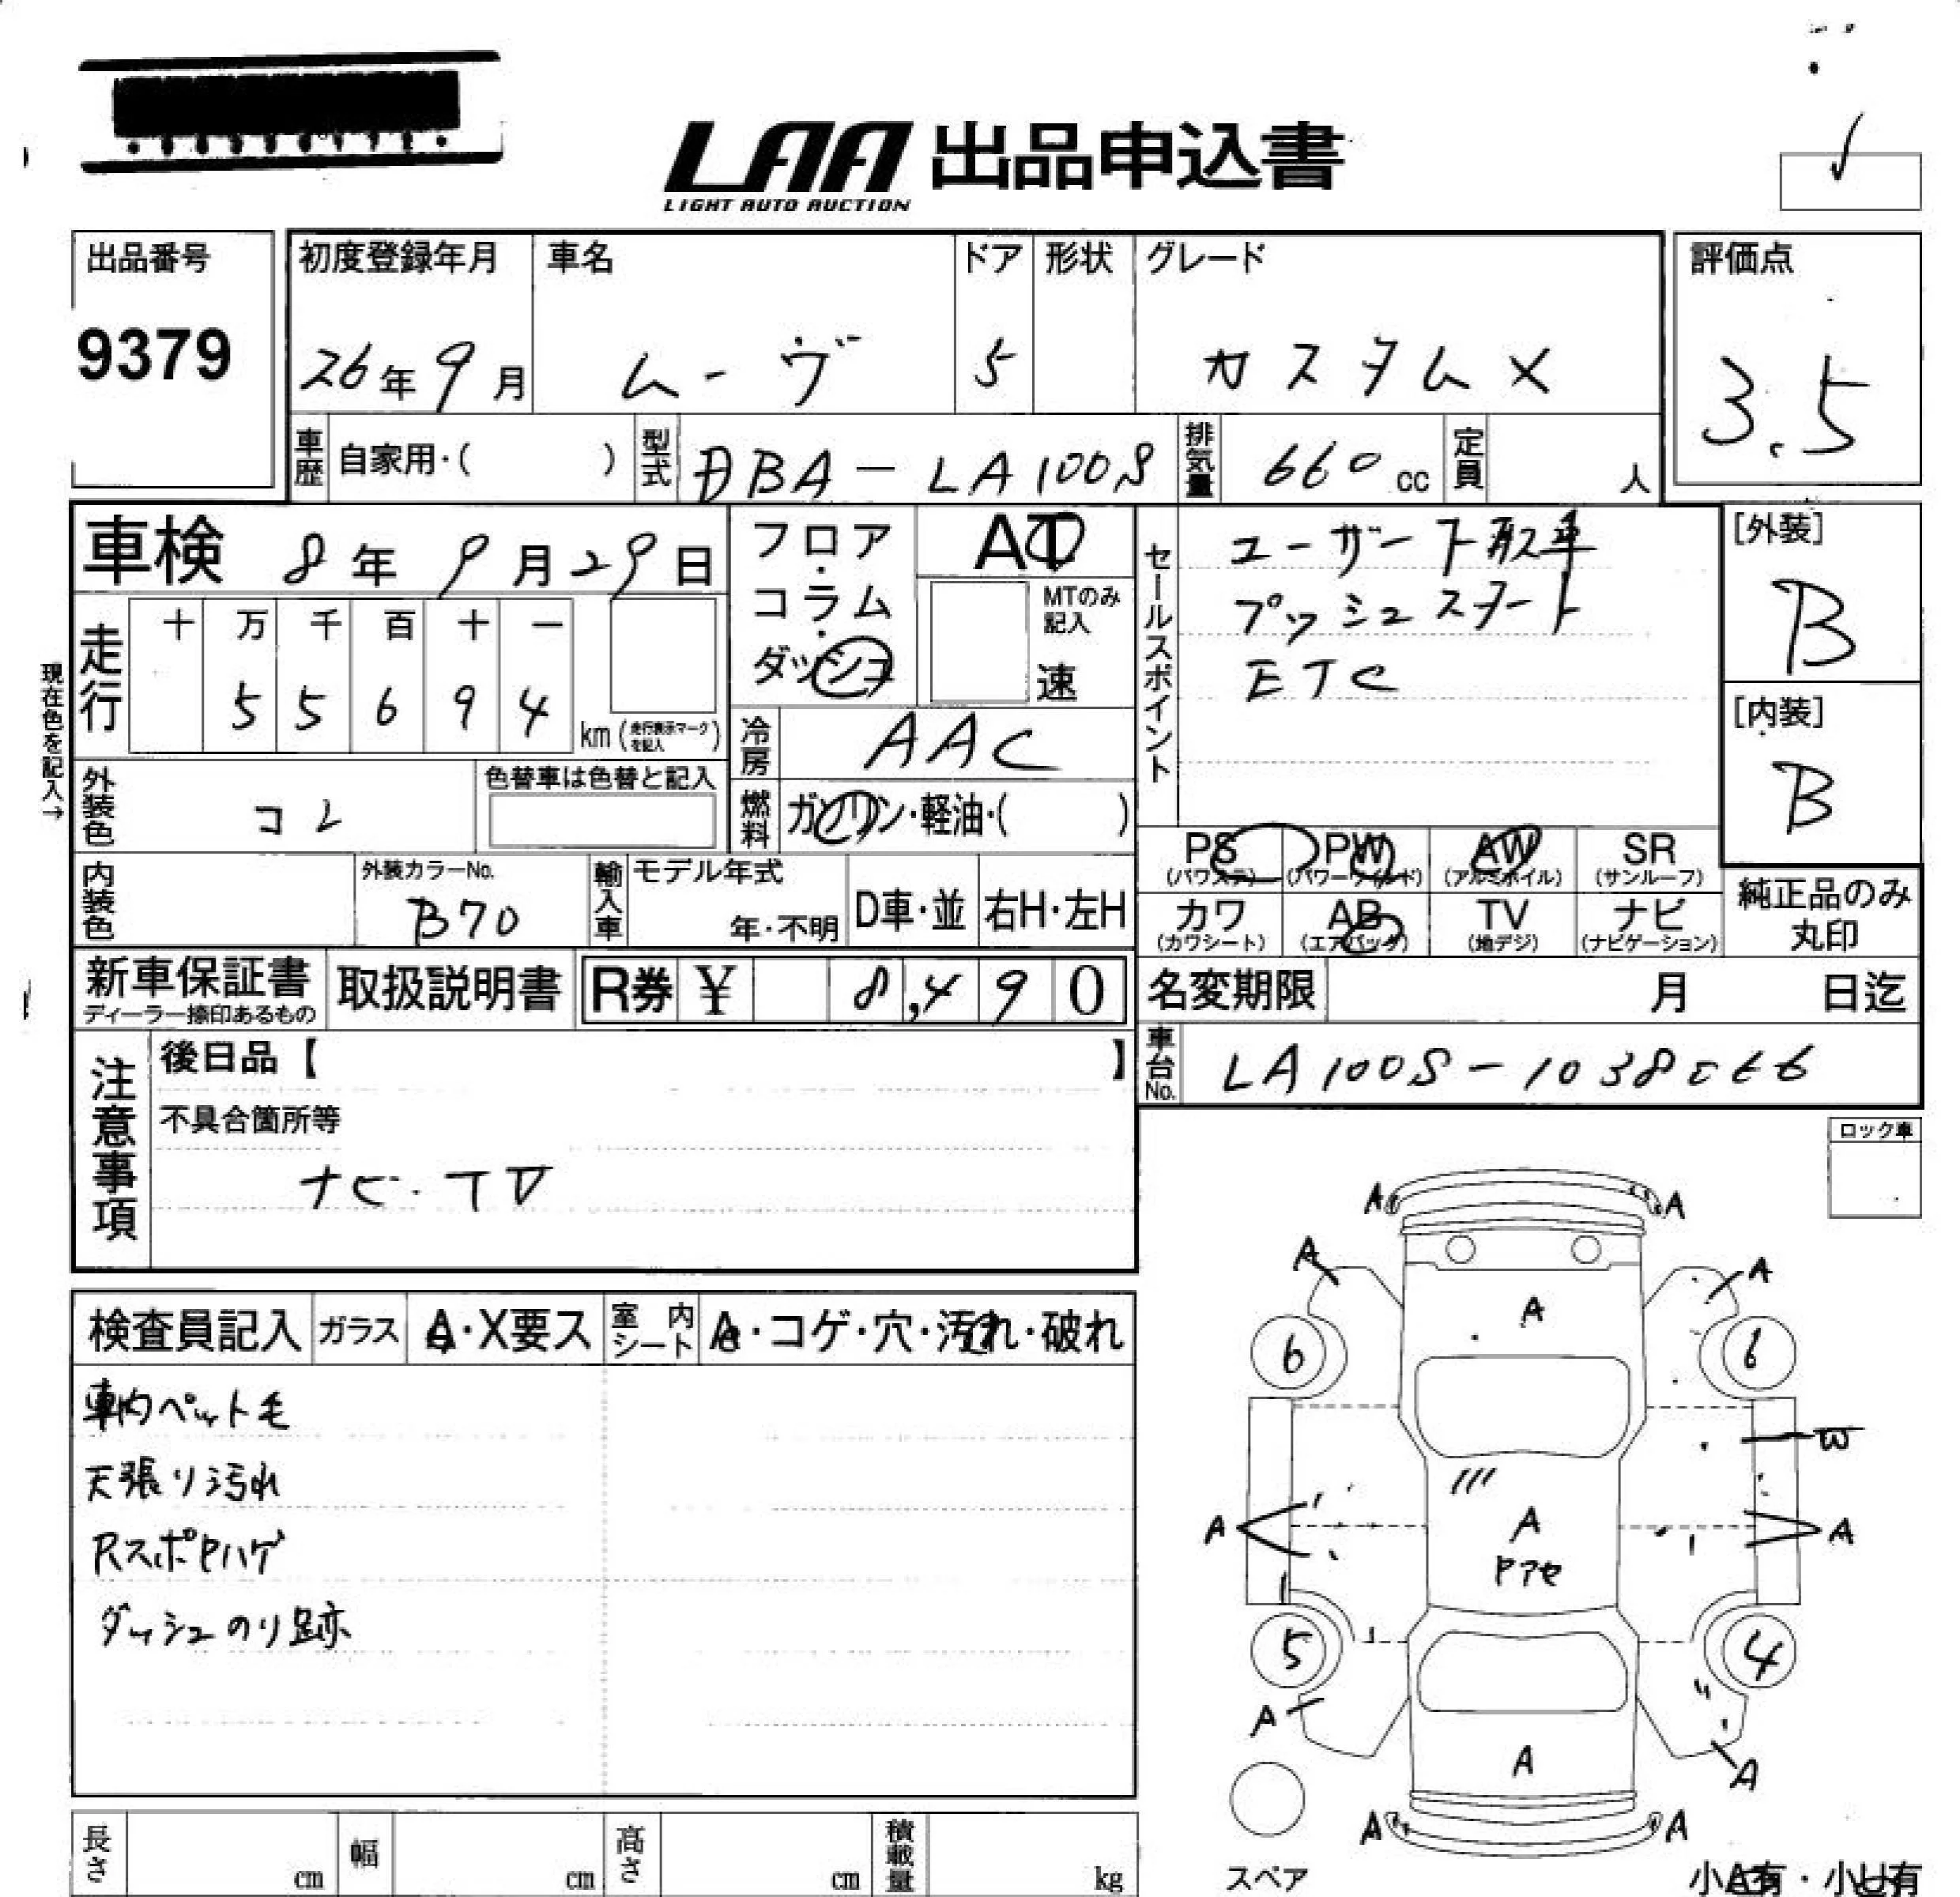 LAA 出品申込書
LIGHT AUTO AUCTION
出品番号
9379
初度登録年月
26年9月
車名
ムーヴ
ドア
5
形状
グレード
カスタムX
評価点
3.5
車歴 自家用・( )
型式 DBA-LA100S
排気量 660cc
定員 人
車検 8年9月29日
フロア・コラム・ダッシュ
AT
MTのみ記入
速
セールスポイント
ユーザー下取車
プッシュスタート
ETC
[外装]
B
[内装]
B
現在色を記入→
走行 十 万 千 百 十 一
55694 km (走行表示マークを記入)
冷房 AAC
外装色 コレ
色替車は色替と記入
燃料 ガソリン・軽油・( )
内装色
外装カラーNo.
B70
輸入車 モデル年式
年・不明
D車・並 右H・左H
PS (パワステ) PW (パワーウィンド) AW (アルミホイル) SR (サンルーフ)
カワ (カワシート) AB (エアバッグ) TV (地デジ) ナビ (ナビゲーション)
純正品のみ丸印
新車保証書
ディーラー捺印あるもの
取扱説明書
R券 ¥ 8,490
名変期限 月 日迄
車台No. LA100S-1038
注意事項
後日品【 】
不具合箇所等
ナビ・TV
ロック車
検査員記入 ガラス A・X要ス 室内シート A・コゲ・穴・汚れ・破れ
車内ペット毛
天張り汚れ
RスポPハゲ
ダッシュのり跡
A A
A A
A
6 6
W
A A A
ドアセ
5 4
A
A A
A A
スペア
長さ cm 幅 cm 高さ cm 積載量 kg
小A有・小U有